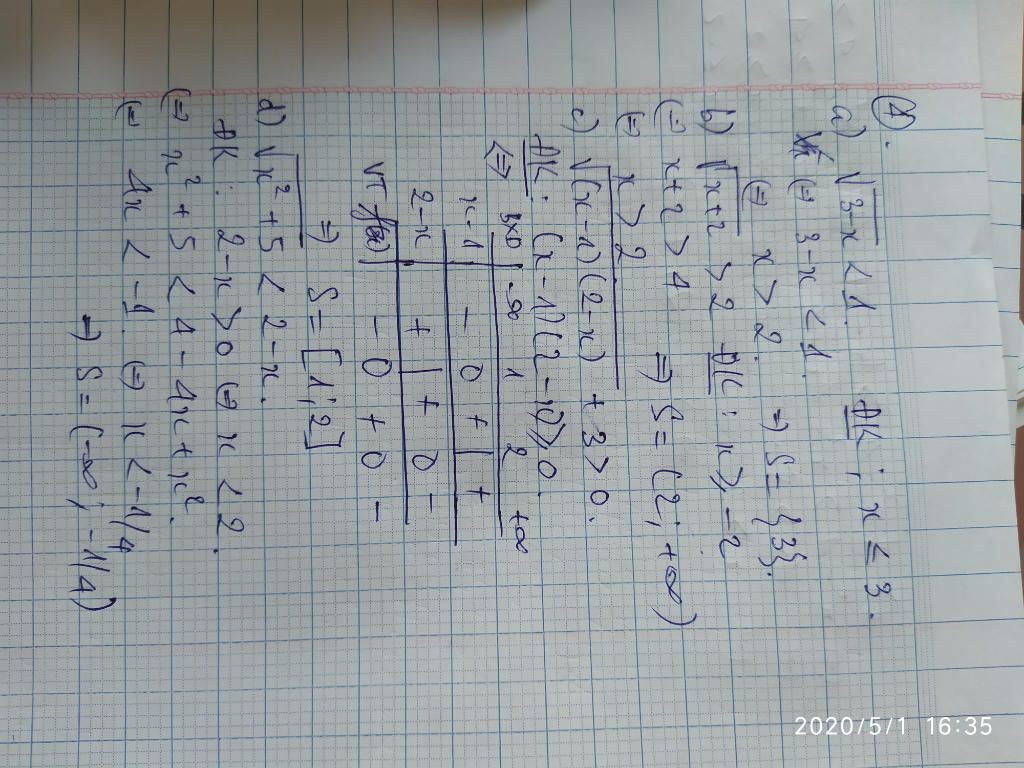 1.
a) √3-x < 1. ĐK: x ≤ 3.
(=) 3-x < 1.
(=) x > 2. => S = {3}.
b) √x+2 > 2 ĐK: x ≥ -2
(=) x+2 > 4
(=) x > 2 => S = (2; +∞)
c) √(x-1)(2-x) + 3 > 0.
ĐK: (x-1)(2-x) ≥ 0.
<=> BXD -∞ 1 2 +∞
x-1 - 0 + | +
2-x + | + 0 -
VT - 0 + 0 -
=> S = [1;2]
d) √x²+5 < 2-x.
ĐK: 2-x > 0 (=) x < 2.
(=) x²+5 < 4-4x+x².
(=) 4x < -1. (=) x < -1/4
=> S = (-∞; -1/4)
2020/5/1 16:35